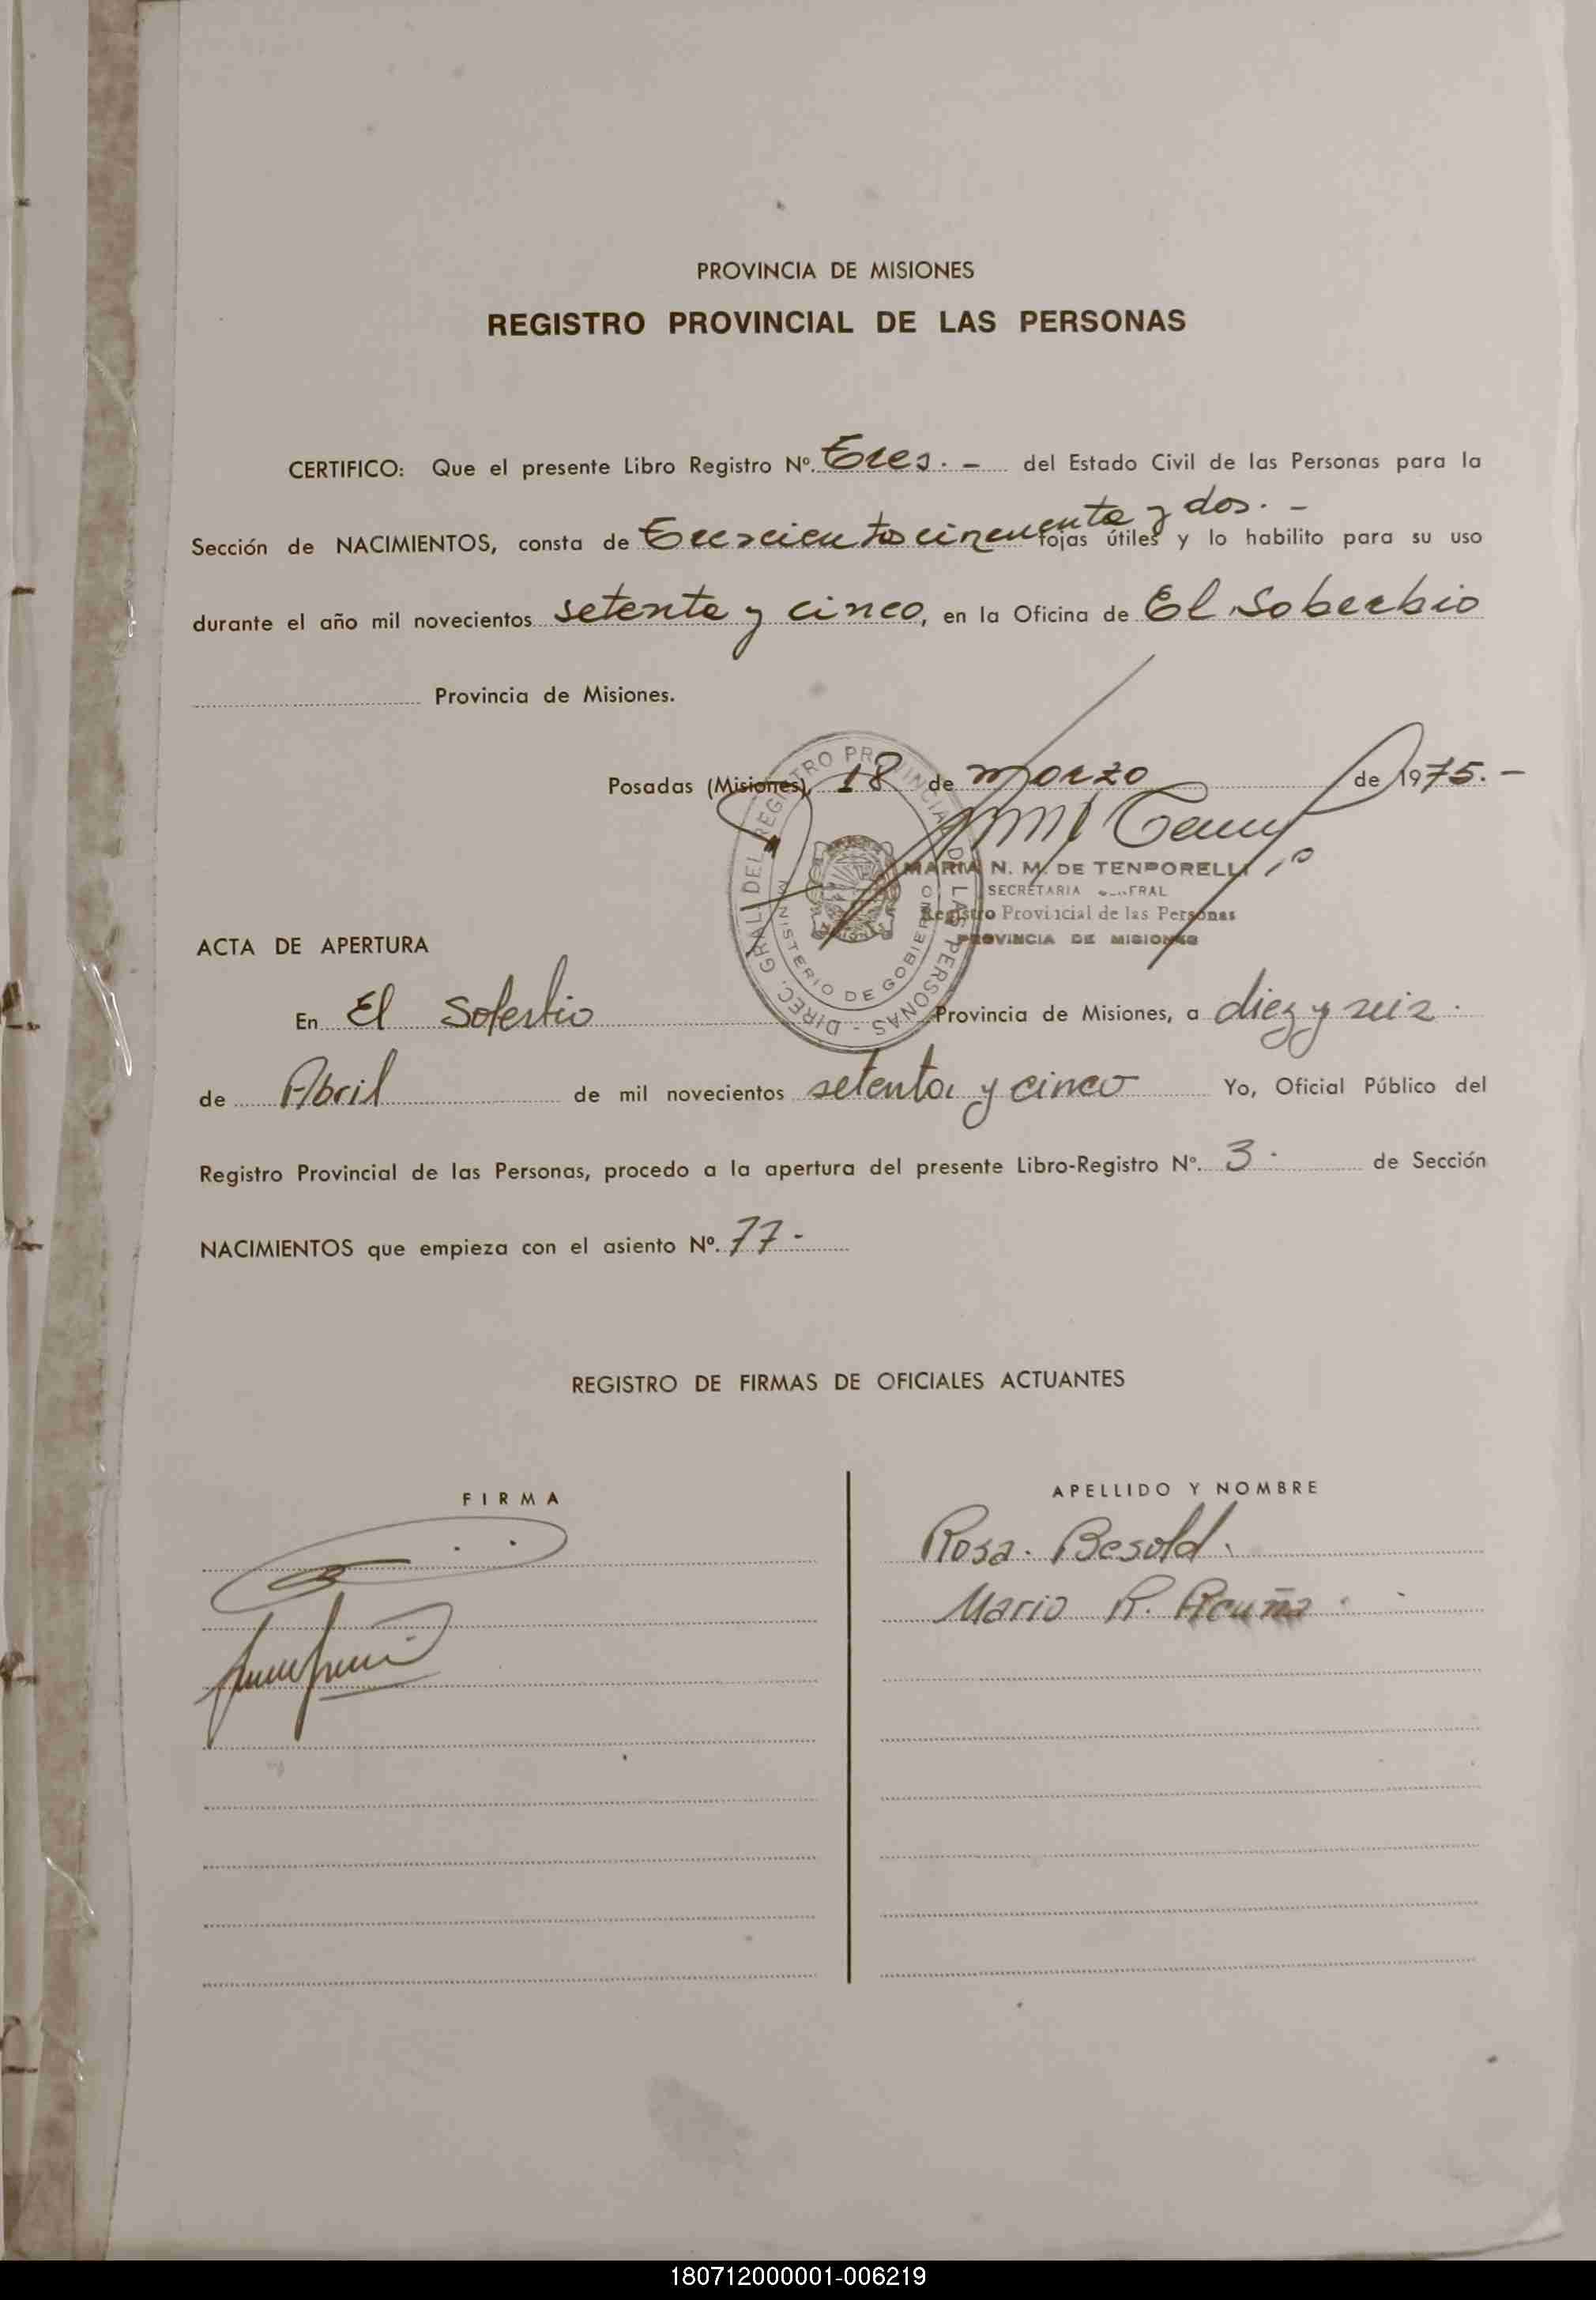 PROVINCIA DE MISIONES
REGISTRO PROVINCIAL DE LAS PERSONAS
CERTIFICO: Que el presente Libro Registro Nº. Tres. - del Estado Civil de las Personas para la
Sección de NACIMIENTOS, consta de Trescientos cincuenta y dos. - fojas útiles y lo habilito para su uso
durante el año mil novecientos setenta y cinco, en la Oficina de El Soberbio
Provincia de Misiones.
Posadas (Misiones), 18 de marzo de 1975. -
MARIA N. M. DE TENPORELLI
SECRETARIA
Registro Provincial de las Personas
PROVINCIA DE MISIONES
DIREC. GRAL. DEL REGISTRO PROVINCIAL DE LAS PERSONAS -
MINISTERIO DE GOBIERNO
MISIONES
ACTA DE APERTURA
En El Soberbio Provincia de Misiones, a diez y seis.
de Abril de mil novecientos setenta y cinco Yo, Oficial Público del
Registro Provincial de las Personas, procedo a la apertura del presente Libro-Registro Nº. 3. de Sección
NACIMIENTOS que empieza con el asiento Nº. 77 -
REGISTRO DE FIRMAS DE OFICIALES ACTUANTES
FIRMA
APELLIDO Y NOMBRE
Rosa. Besold.
Mario R. Acuña.
180712000001-006219